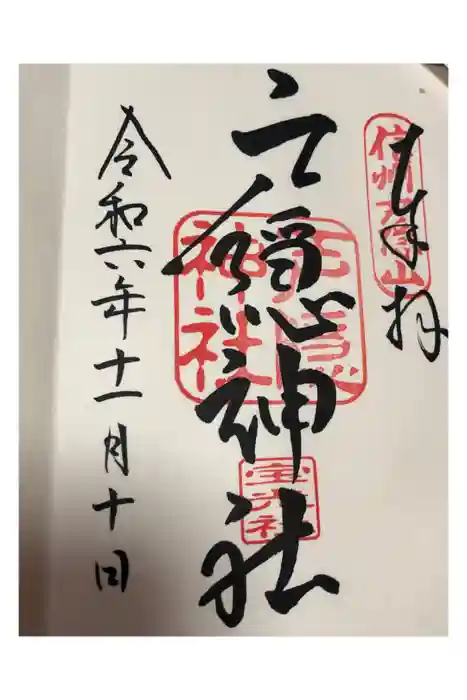 奉拝
信州戸隠山
戸隠神社
戸隠神社
宝光社
令和六年十一月十日